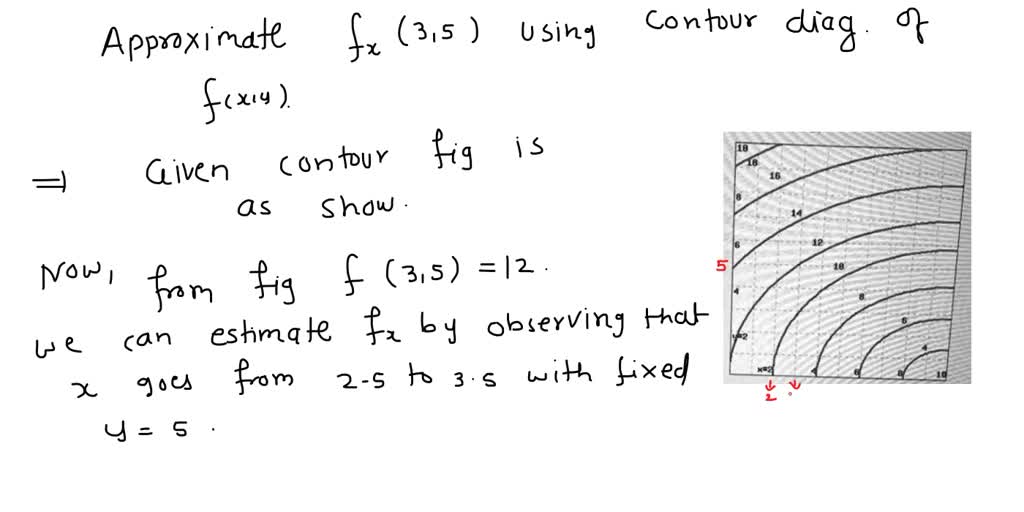 Approximate fx (3,5) using contour diag. of
f(x,y).
⇒ Given contour fig is
as show.
Now, from fig f (3,5) = 12.
we can estimate fx by observing that
x goes from 2.5 to 3.5 with fixed
y = 5 .
10
18
16
8
14
6
12
5
10
4
8
6
y=2
4
x=2
4
6
8
10
2